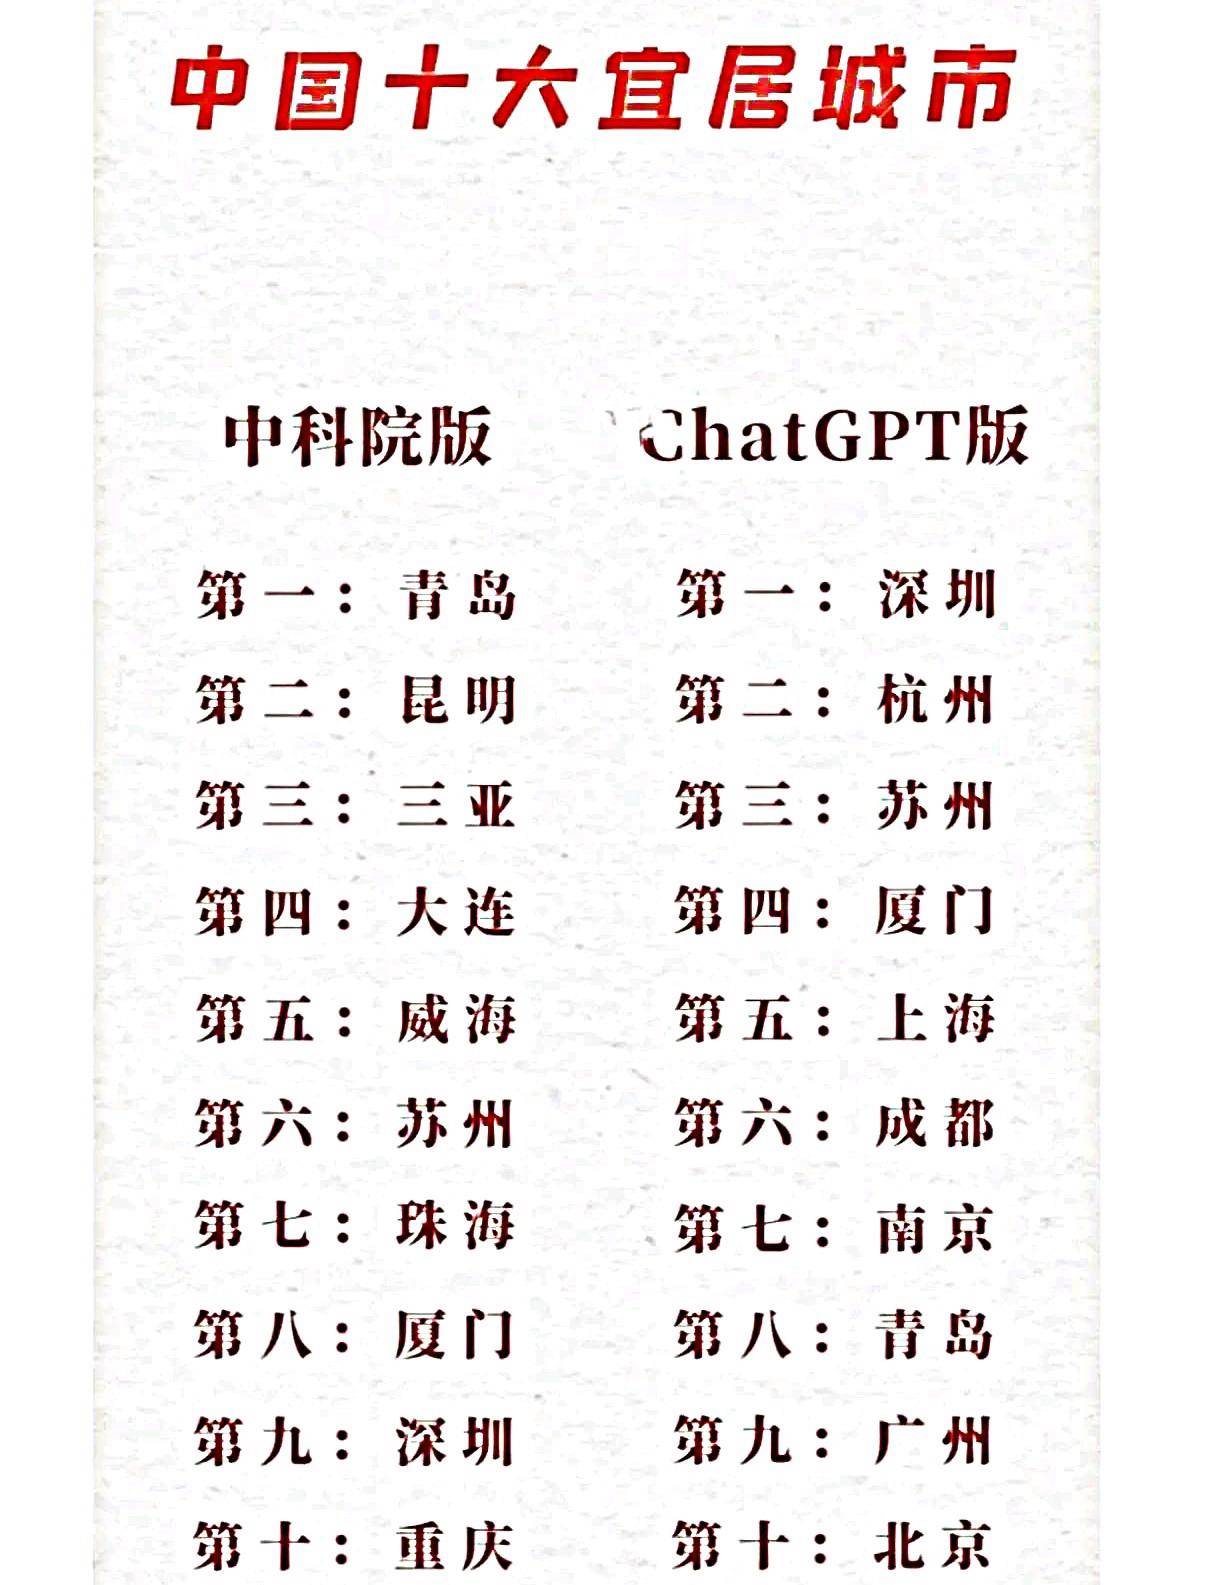 中国十大宜居城市
中科院版 ChatGPT版
第一：青岛 第一：深圳
第二：昆明 第二：杭州
第三：三亚 第三：苏州
第四：大连 第四：厦门
第五：威海 第五：上海
第六：苏州 第六：成都
第七：珠海 第七：南京
第八：厦门 第八：青岛
第九：深圳 第九：广州
第十：重庆 第十：北京